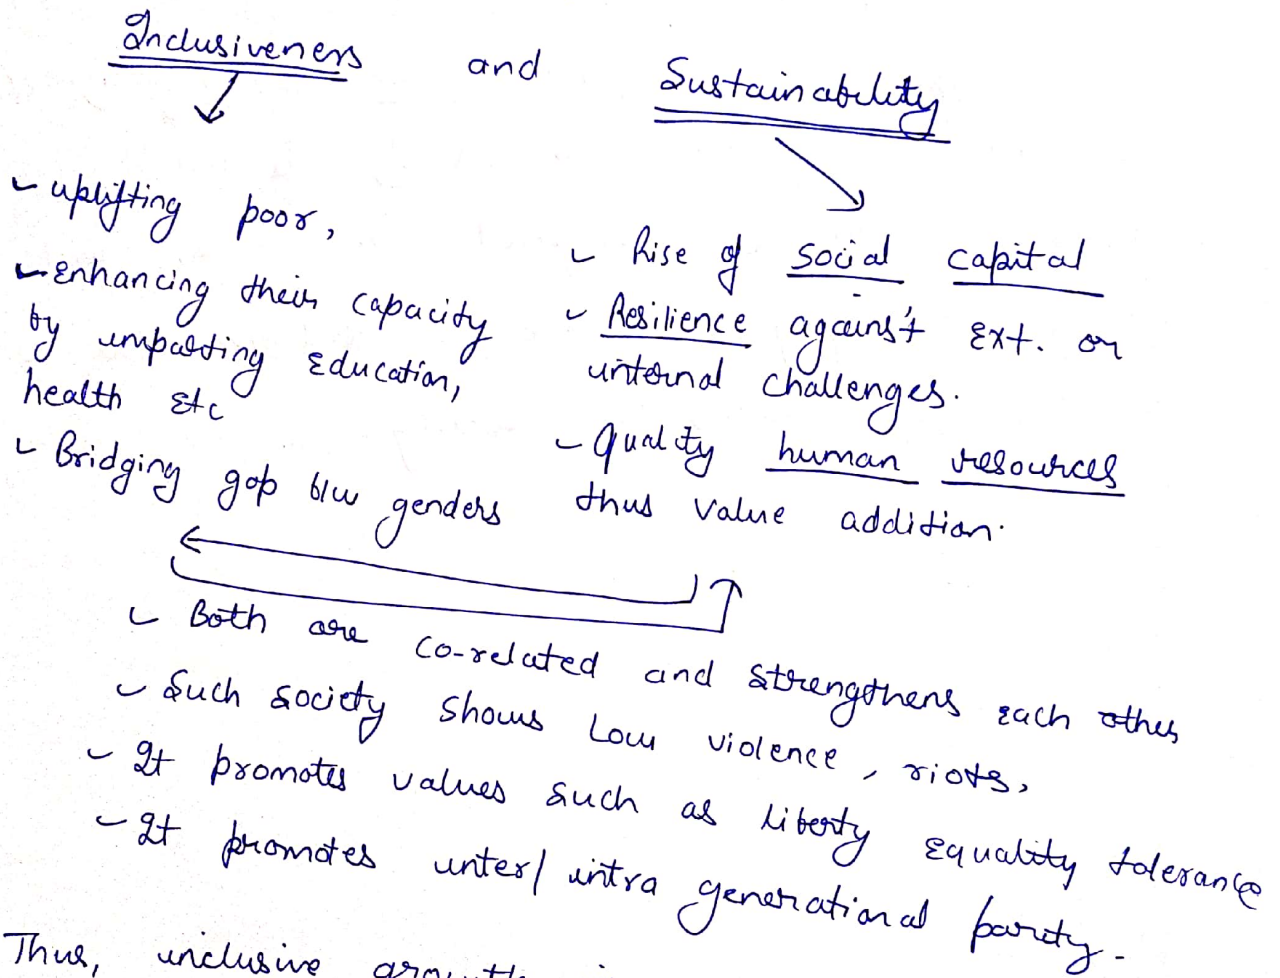 Inclusiveness and Sustainability
- uplifting poor,
- Enhancing their capacity
by imparting Education,
health etc
- Bridging gap b/w genders
- Rise of social capital
- Resilience against Ext. or
internal challenges.
- quality human resources
thus value addition.
- Both are co-related and strengthens each other
- Such society shows low violence, riots,
- It promotes values such as liberty equality tolerance
- It promotes inter/intra generational parity.
Thus, inclusive growth